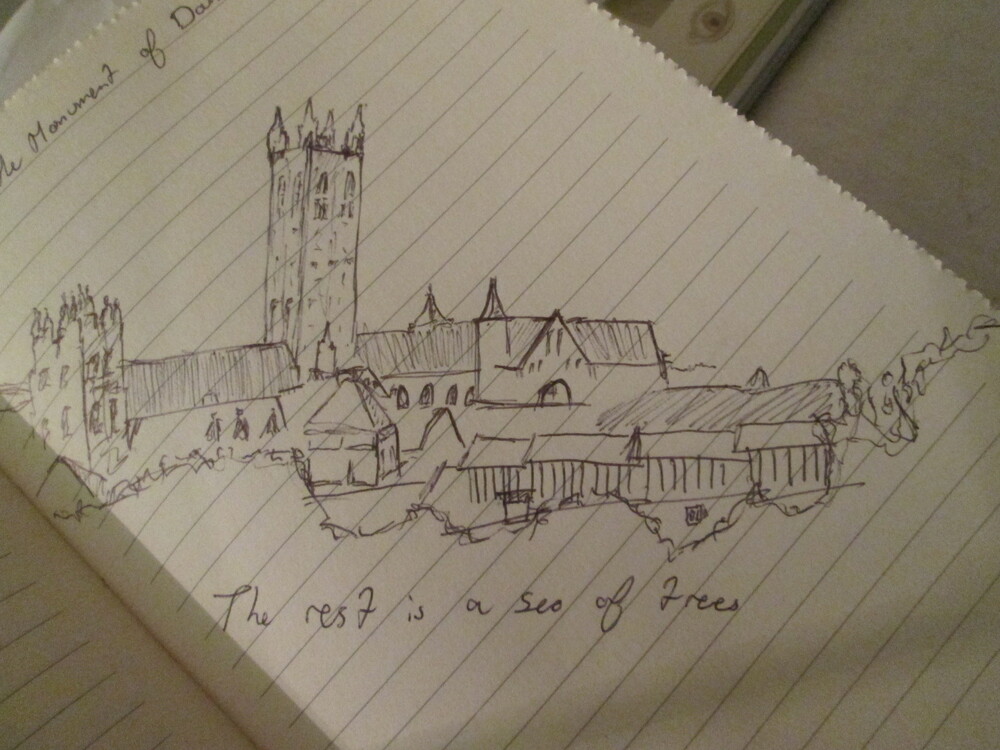 Monument of Da
The rest is a seo of trees